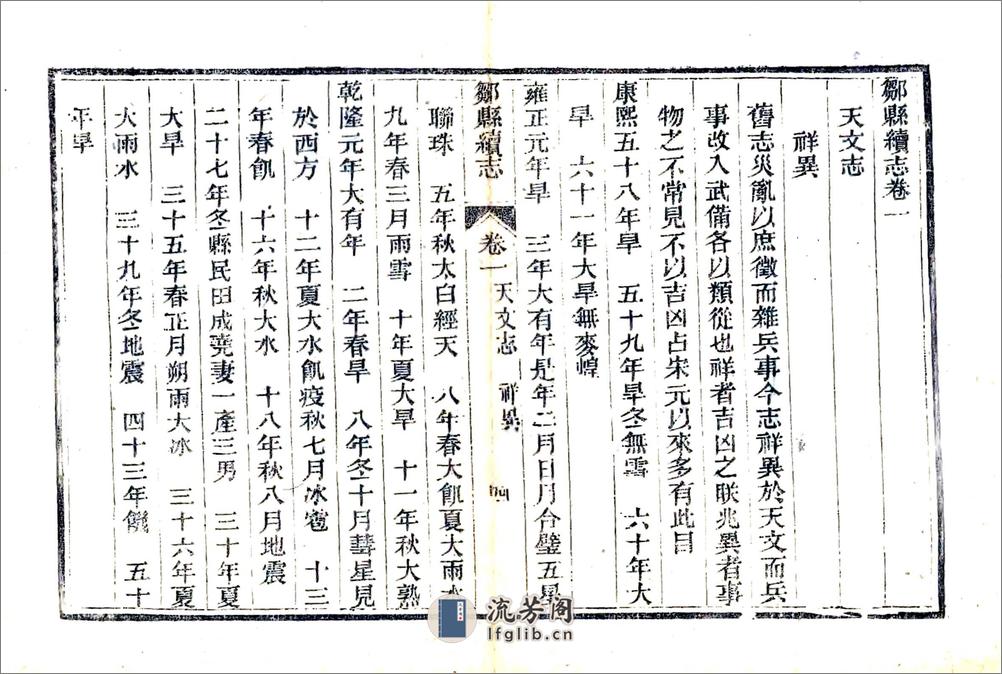 鄒縣續志卷一
天文志
祥異
舊志災亂以庶徵而雜兵事今志祥異於天文而兵
事改入武備各以類從也祥者吉凶之朕兆異者事
物之不常見不以吉凶占宋元以來多有此目
康熙五十八年旱　五十九年旱冬無雪　六十年大
旱　六十一年大旱無麥煌
雍正元年旱　三年大有年是年二月日月合璧五星
鄒縣續志　卷一　天文志　祥異　四
聯珠　五年秋太白經天　八年春大飢夏大雨水
九年春三月雨雪　十年夏大旱　十一年秋大熟
乾隆元年大有年　二年春旱　八年冬十月彗星見
於西方　十二年夏大水飢疫秋七月冰雹　十三
年春飢　十六年秋大水　十八年秋八月地震
二十七年冬縣民田成堯妻一產三男　三十年夏
大旱　三十五年春正月朔雨大冰　三十六年夏
大雨水　三十九年冬地震　四十三年饑　五十
年旱
流芳阁
lfglib.cn